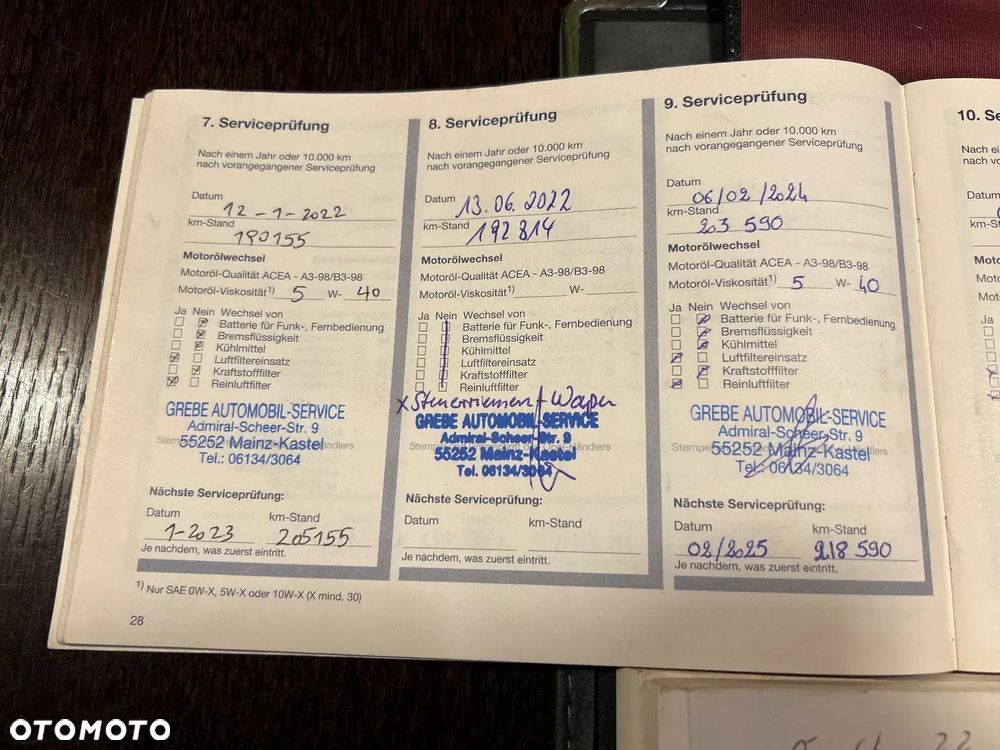 7. Serviceprüfung
Nach einem Jahr oder 10.000 km
nach vorangegangener Serviceprüfung
Datum
12-1-2022
km-Stand
190155
Motorölwechsel
Motoröl-Qualität ACEA - A3-98/B3-98
Motoröl-Viskosität¹⁾ 5 W- 40
Ja Nein Wechsel von
Batterie für Funk-, Fernbedienung
Bremsflüssigkeit
Kühlmittel
Luftfiltereinsatz
Kraftstofffilter
Reinluftfilter
GREBE AUTOMOBIL-SERVICE
Admiral-Scheer-Str. 9
55252 Mainz-Kastel
Tel.: 06134/3064
Nächste Serviceprüfung:
Datum km-Stand
1-2023 205155
Je nachdem, was zuerst eintritt.
8. Serviceprüfung
Nach einem Jahr oder 10.000 km
nach vorangegangener Serviceprüfung
Datum 13.06.2022
km-Stand 192814
Motorölwechsel
Motoröl-Qualität ACEA - A3-98/B3-98
Motoröl-Viskosität¹⁾ W-
Ja Nein Wechsel von
Batterie für Funk-, Fernbedienung
Bremsflüssigkeit
Kühlmittel
Luftfiltereinsatz
Kraftstofffilter
Reinluftfilter
x Steuerriemen +
GREBE AUTOMOBIL-SERVICE
Admiral-Scheer-Str. 9
55252 Mainz-Kastel
Tel. 06134/3064
Nächste Serviceprüfung:
Datum km-Stand
Je nachdem, was zuerst eintritt.
9. Serviceprüfung
Nach einem Jahr oder 10.000 km
nach vorangegangener Serviceprüfung
Datum
06/02/2024
km-Stand
203 590
Motorölwechsel
Motoröl-Qualität ACEA - A3-98/B3-98
Motoröl-Viskosität¹⁾ 5 W- 40
Ja Nein Wechsel von
Batterie für Funk-, Fernbedienung
Bremsflüssigkeit
Kühlmittel
Luftfiltereinsatz
Kraftstofffilter
Reinluftfilter
GREBE AUTOMOBIL-SERVICE
Admiral-Scheer-Str. 9
55252 Mainz-Kastel
Tel.: 06134/3064
Nächste Serviceprüfung:
Datum km-Stand
02/2025 218 590
Je nachdem, was zuerst eintritt.
10. Se
Nach ei
nach vo
Datum
km-St
¹⁾ Nur SAE 0W-X, 5W-X oder 10W-X (X mind. 30)
28
OTOMOTO